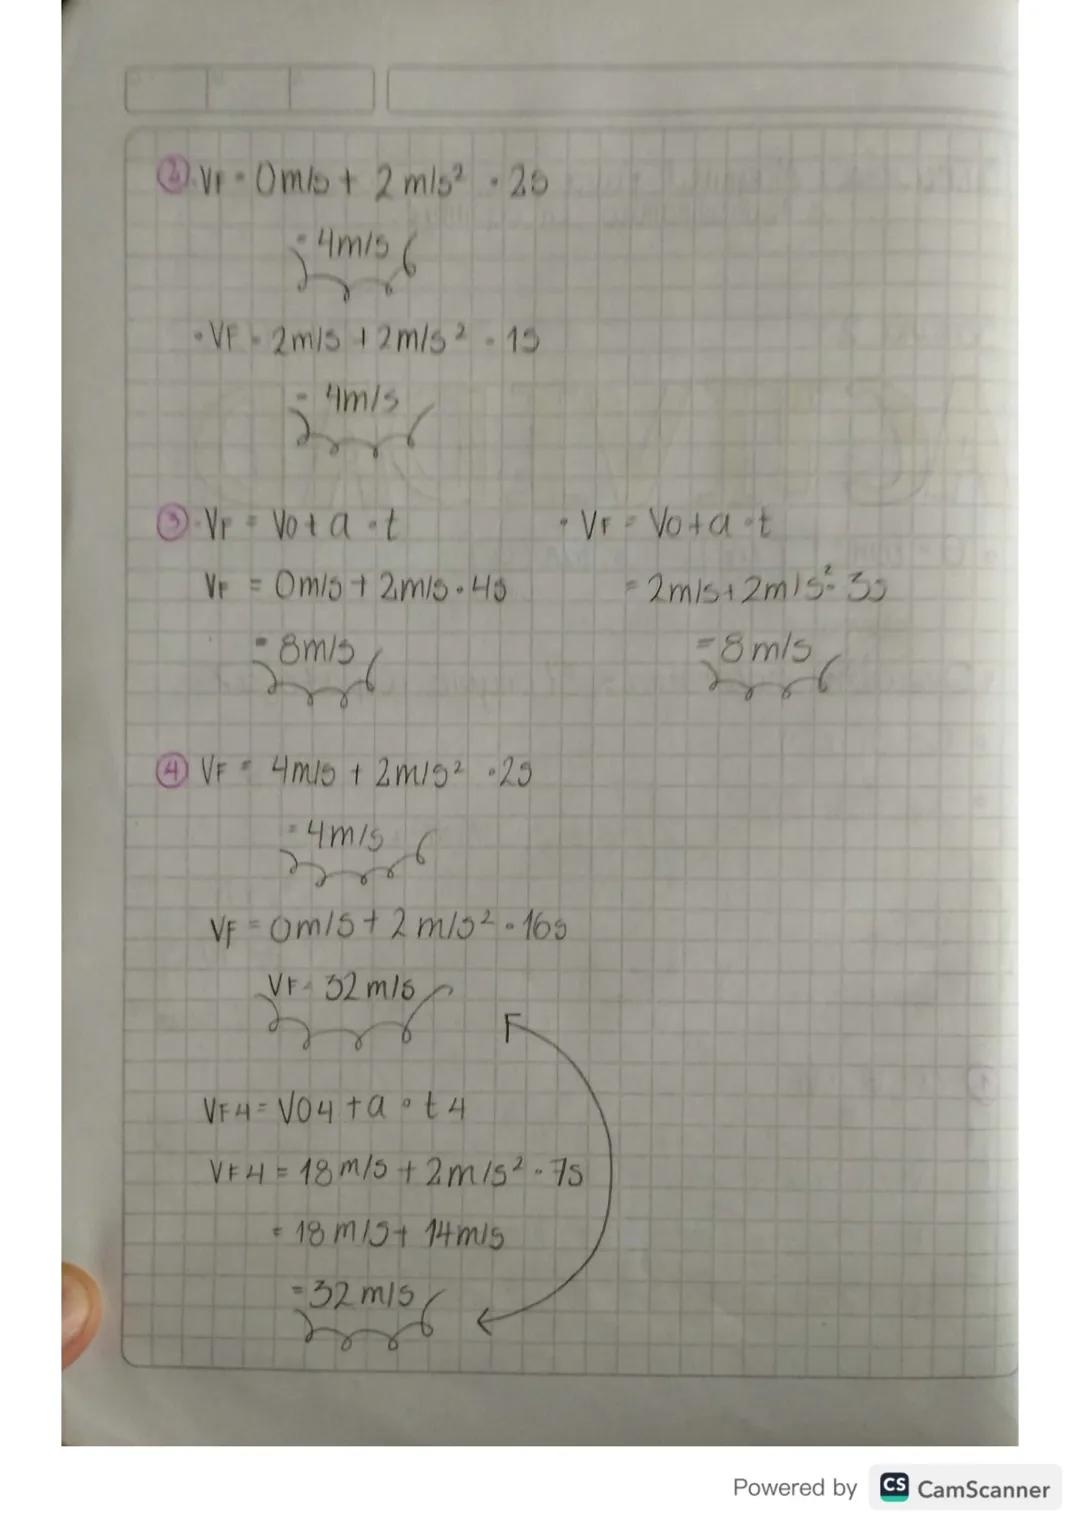 ② · VF = 0m/s + 2m/s² · 2s
= 4m/s
· VF = 2m/s + 2m/s² · 1s
= 4m/s
③ · VF = Vo + a · t
VF = 0m/s + 2m/s · 4s
= 8m/s
· VF = Vo + a · t
= 2m/s + 2m/s² · 3s
= 8m/s
④ VF = 4m/s + 2m/s² · 2s
= 4m/s
VF = 0m/s + 2m/s² · 16s
VF = 32m/s
VF4 = VO4 + a · t4
VF4 = 18m/s + 2m/s² · 7s
= 18m/s + 14m/s
= 32m/s
Powered by CS CamScanner